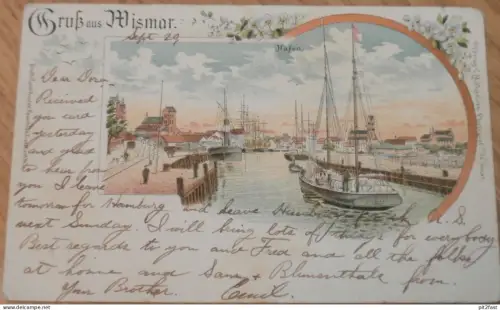 Gruß aus Wismar.
Sept 29
Hafen.
Dear Dora
Received
you card
yesterday
and glad
to hear from
you I leave
tomorrow for Hamburg and leave for U.S.
next Sunday. I will bring lots of things for everybody
Best regards to you and Fred and all the folks
at home and Sam & Blumenthals from.
Your Brother. Emil.